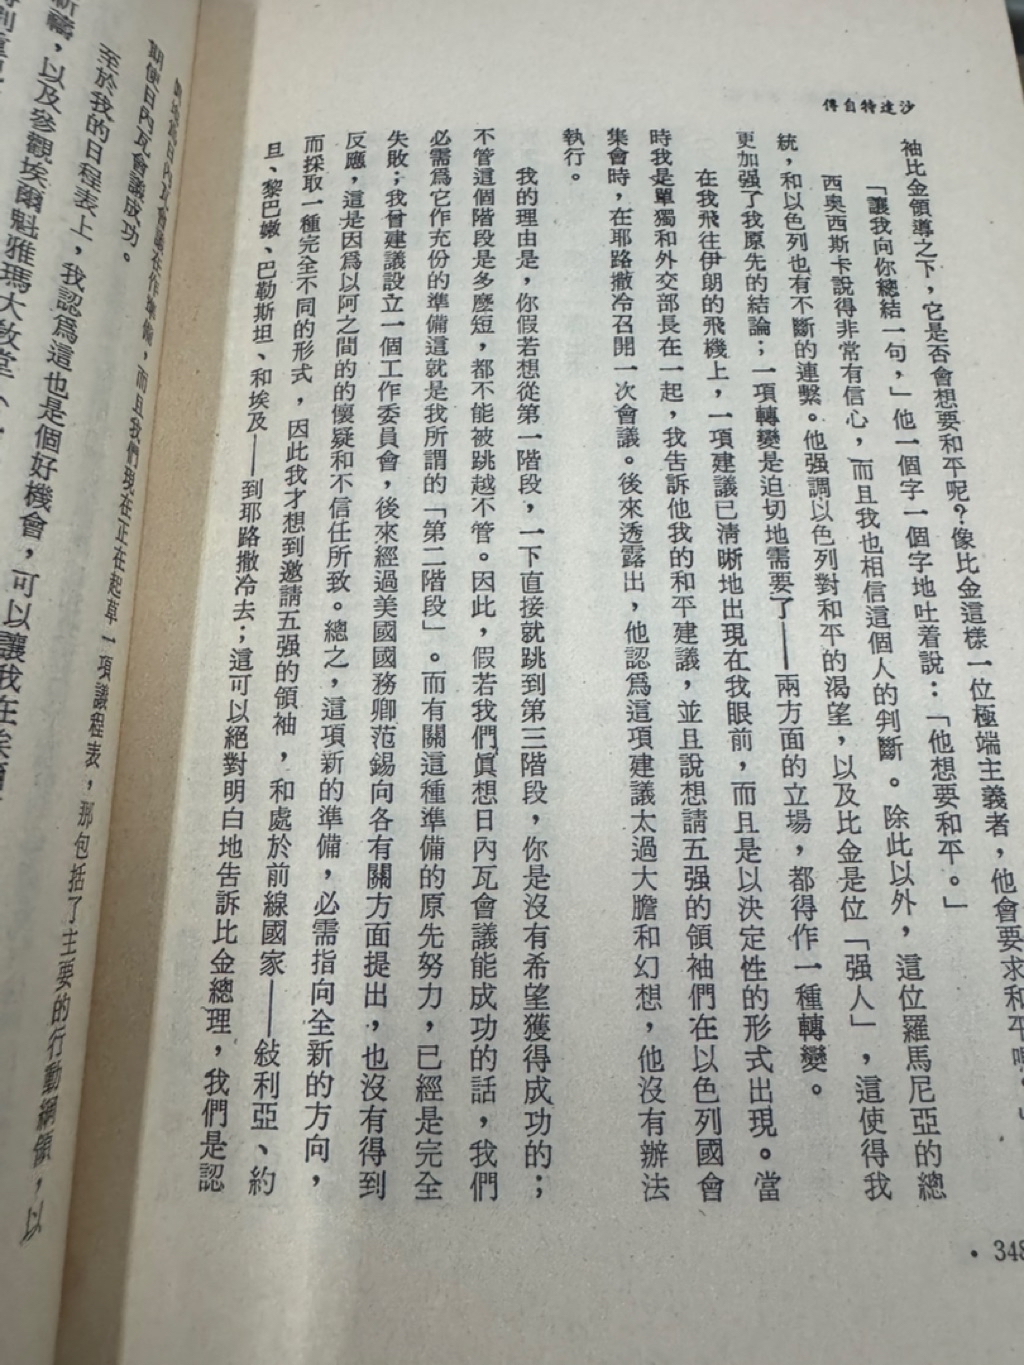 沙達特自傳
袖比金領導之下，它是否會想要和平呢？像比金這樣一位極端主義者，他會要求和平嗎。」
「讓我向你總結一句，」他一個字一個字地吐着說：「他想要和平。」
西奧西斯卡說得非常有信心，而且我也相信這個人的判斷。除此以外，這位羅馬尼亞的總
統，和以色列也有不斷的連繫。他强調以色列對和平的渴望，以及比金是位「强人」，這使得我
更加强了我原先的結論；一項轉變是迫切地需要了——兩方面的立場，都得作一種轉變。
在我飛往伊朗的飛機上，一項建議已清晰地出現在我眼前，而且是以決定性的形式出現。當
時我是單獨和外交部長在一起，我告訴他我的和平建議，並且說想請五强的領袖們在以色列國會
集會時，在耶路撒冷召開一次會議。後來透露出，他認爲這項建議太過大膽和幻想，他沒有辦法
執行。
我的理由是，你假若想從第一階段，一下直接就跳到第三階段，你是沒有希望獲得成功的；
不管這個階段是多麽短，都不能被跳越不管。因此，假若我們眞想日內瓦會議能成功的話，我們
必需爲它作充份的準備這就是我所謂的「第二階段」。而有關這種準備的原先努力，已經是完全
失敗；我曾建議設立一個工作委員會，後來經過美國國務卿范錫向各有關方面提出，也沒有得到
反應，這是因爲以阿之間的的懷疑和不信任所致。總之，這項新的準備，必需指向全新的方向，
而採取一種完全不同的形式，因此我才想到邀請五强的領袖，和處於前線國家——敍利亞、約
旦、黎巴嫩、巴勒斯坦、和埃及——到耶路撒冷去；這可以絕對明白地告訴比金總理，我們是認
在作準備，而且我們現在正在起草一項議程表，那包括了主要的行動綱領，以
期使日內瓦會議成功。
至於我的日程表上，我認爲這也是個好機會，可以讓我在埃
祈禱，以及參觀埃爾魁雅瑪大教堂
• 348